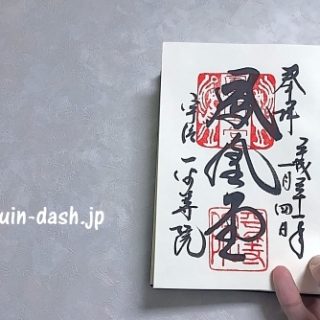 奉拝
平成三十一年
一月四日
鳳凰堂
宇治
平等院
uin-dash.jp